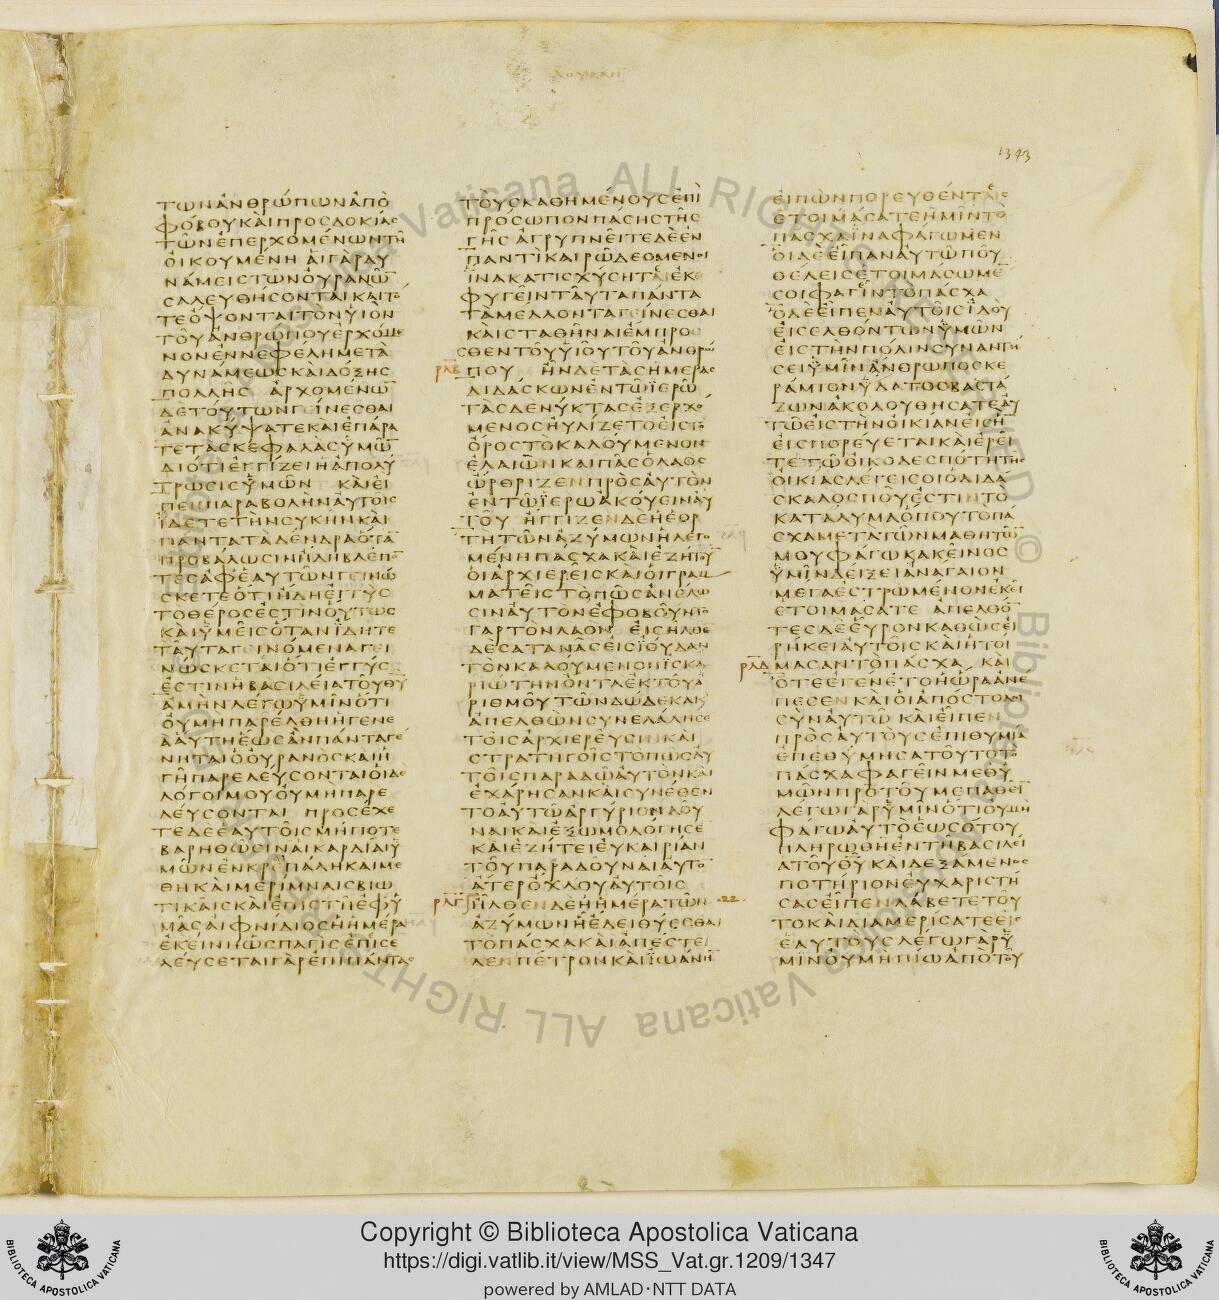 1343
ΤΩΝΑΝΘΡΩΠΩΝΑΠΟ
ΦΟΒΟΥΚΑΙΠΡΟΣΔΟΚΙΑΣ
ΤΩΝΕΠΕΡΧΟΜΕΝΩΝΤΗ
ΟΙΚΟΥΜΕΝΗ ΑΙΓΑΡΔΥ
ΝΑΜΕΙΣΤΩΝΟΥΡΑΝΩ̅
ΣΑΛΕΥΘΗΣΟΝΤΑΙΚΑΙΤΟ
ΤΕΟΨΟΝΤΑΙΤΟΝΥΙΟΝ
ΤΟΥΑΝΘΡΩΠΟΥΕΡΧΟΜΕ
ΝΟΝΕΝΝΕΦΕΛΗΜΕΤΑ
ΔΥΝΑΜΕΩΣΚΑΙΔΟΞΗΣ
ΠΟΛΛΗΣ ΑΡΧΟΜΕΝΩ̅
ΔΕΤΟΥΤΩΝΓΕΙΝΕΣΘΑΙ
ΑΝΑΚΥΨΑΤΕΚΑΙΕΠΑΡΑ
ΤΕΤΑΣΚΕΦΑΛΑΣΥΜΩ̅
ΔΙΟΤΙΕΓΓΙΖΕΙΗΑΠΟΛΥ
ΤΡΩΣΙΣΥΜΩΝ ΚΑΙΕΙ
ΠΕΝΠΑΡΑΒΟΛΗΝΑΥΤΟΙΣ
ΙΔΕΤΕΤΗΝΣΥΚΗΝΚΑΙ
ΠΑΝΤΑΤΑΔΕΝΔΡΑΟΤΑ̅
ΠΡΟΒΑΛΩΣΙΝΗΔΗΒΛΕΠΟ̅
ΤΕΣΑΦΕΑΥΤΩΝΓΕΙΝΩ
ΣΚΕΤΕΟΤΙΗΔΗΕΓΓΥΣ
ΤΟΘΕΡΟΣΕΣΤΙΝΟΥΤΩΣ
ΚΑΙΥΜΕΙΣΟΤΑΝΙΔΗΤΕ
ΤΑΥΤΑΓΕΙΝΟΜΕΝΑΓΕΙ
ΝΩΣΚΕΤΑΙΟΤΙΕΓΓΥΣ
ΕΣΤΙΝΗΒΑΣΙΛΕΙΑΤΟΥΘΥ̅
ΑΜΗΝΛΕΓΩΥΜΙΝΟΤΙ
ΟΥΜΗΠΑΡΕΛΘΗΗΓΕΝΕ
ΑΑΥΤΗΕΩΣΑΝΠΑΝΤΑΓΕ
ΝΗΤΑΙΟΟΥΡΑΝΟΣΚΑΙΗ
ΓΗΠΑΡΕΛΕΥΣΟΝΤΑΙΟΙΔΕ
ΛΟΓΟΙΜΟΥΟΥΜΗΠΑΡΕ
ΛΕΥΣΟΝΤΑΙ ΠΡΟΣΕΧΕ
ΤΕΔΕΕΑΥΤΟΙΣΜΗΠΟΤΕ
ΒΑΡΗΘΩΣΙΝΑΙΚΑΡΔΙΑΙΥ
ΜΩΝΕΝΚΡΕΠΑΛΗΚΑΙΜΕ
ΘΗΚΑΙΜΕΡΙΜΝΑΙΣΒΙΩ
ΤΙΚΑΙΣΚΑΙΕΠΙΣΤΗΕΦΥ
ΜΑΣΑΙΦΝΙΔΙΟΣΗΗΜΕΡΑ
ΕΚΕΙΝΗΩΣΠΑΓΙΣΕΠΙΣΕ
ΛΕΥΣΕΤΑΙΓΑΡΕΠΙΠΑΝΤΑΣ
ΤΟΥΣΚΑΘΗΜΕΝΟΥΣΕΠΙ
ΠΡΟΣΩΠΟΝΠΑΣΗΣΤΗΣ
ΓΗΣΑΓΡΥΠΝΕΙΤΕΔΕΕΝ
ΠΑΝΤΙΚΑΙΡΩΔΕΟΜΕΝΟΙ
ΙΝΑΚΑΤΙΣΧΥΣΗΤΑΙΕΚ
ΦΥΓΕΙΝΤΑΥΤΑΠΑΝΤΑ
ΤΑΜΕΛΛΟΝΤΑΓΕΙΝΕΣΘΑΙ
ΚΑΙΣΤΑΘΗΝΑΙΕΜΠΡΟ
ΣΘΕΝΤΟΥΥΙΟΥΤΟΥΑΝΘΡΩ
ΡΛΒ ΠΟΥ ΗΝΔΕΤΑΣΗΜΕΡΑΣ
ΔΙΔΑΣΚΩΝΕΝΤΩΙΕΡΩ
ΤΑΣΔΕΝΥΚΤΑΣΕΞΕΡΧΟ
ΜΕΝΟΣΗΥΛΙΖΕΤΟΕΙΣΤΟ
ΟΡΟΣΤΟΚΑΛΟΥΜΕΝΟΝ
ΕΛΑΙΩΝΚΑΙΠΑΣΟΛΑΟΣ
ΩΡΘΡΙΖΕΝΠΡΟΣΑΥΤΟΝ
ΕΝΤΩΙΕΡΩΑΚΟΥΕΙΝΑΥ
ΤΟΥ ΗΓΓΙΖΕΝΔΕΗΕΟΡ
ΤΗΤΩΝΑΖΥΜΩΝΗΛΕΓΟ
ΜΕΝΗΠΑΣΧΑΚΑΙΕΖΗΤΟΥ̅
ΟΙΑΡΧΙΕΡΕΙΣΚΑΙΟΙΓΡΑΜ
ΜΑΤΕΙΣΤΟΠΩΣΑΝΕΛΩ
ΣΙΝΑΥΤΟΝΕΦΟΒΟΥΝΤΟ
ΓΑΡΤΟΝΛΑΟΝ ΕΙΣΗΛΘΕ
ΔΕΣΑΤΑΝΑΣΕΙΣΙΟΥΔΑΝ
ΤΟΝΚΑΛΟΥΜΕΝΟΝΙΣΚΑ
ΡΙΩΤΗΝΟΝΤΑΕΚΤΟΥΑ
ΡΙΘΜΟΥΤΩΝΔΩΔΕΚΑΚΑΙ
ΑΠΕΛΘΩΝΣΥΝΕΛΑΛΗΣΕ
ΤΟΙΣΑΡΧΙΕΡΕΥΣΙΝΚΑΙ
ΣΤΡΑΤΗΓΟΙΣΤΟΠΩΣΑΥ
ΤΟΙΣΠΑΡΑΔΩΑΥΤΟΝΚΑΙ
ΕΧΑΡΗΣΑΝΚΑΙΣΥΝΕΘΕΝ
ΤΟΑΥΤΩΑΡΓΥΡΙΟΝΔΟΥ
ΝΑΙΚΑΙΕΞΩΜΟΛΟΓΗΣΕ
ΚΑΙΕΖΗΤΕΙΕΥΚΑΙΡΙΑΝ
ΤΟΥΠΑΡΑΔΟΥΝΑΙΑΥΤΟ̅
ΑΤΕΡΟΧΛΟΥΑΥΤΟΙΣ
ΡΛΓ ΗΛΘΕΝΔΕΗΗΜΕΡΑΤΩΝ 22
ΑΖΥΜΩΝΗΕΔΕΙΘΥΕΣΘΑΙ
ΤΟΠΑΣΧΑΚΑΙΑΠΕΣΤΕΙ
ΛΕΝΠΕΤΡΟΝΚΑΙΙΩΑΝΗ̅
ΕΙΠΩΝΠΟΡΕΥΘΕΝΤΕΣ
ΕΤΟΙΜΑΣΑΤΕΗΜΙΝΤΟ
ΠΑΣΧΑΙΝΑΦΑΓΩΜΕΝ
ΟΙΔΕΕΙΠΑΝΑΥΤΩΠΟΥ
ΘΕΛΕΙΣΕΤΟΙΜΑΣΩΜΕ̅
ΣΟΙΦΑΓΕΙΝΤΟΠΑΣΧΑ
ΟΔΕΕΙΠΕΝΑΥΤΟΙΣΙΔΟΥ
ΕΙΣΕΛΘΟΝΤΩΝΥΜΩΝ
ΕΙΣΤΗΝΠΟΛΙΝΣΥΝΑΝΤΗ
ΣΕΙΥΜΙΝΑΝΘΡΩΠΟΣΚΕ
ΡΑΜΙΟΝΥΔΑΤΟΣΒΑΣΤΑ
ΖΩΝΑΚΟΛΟΥΘΗΣΑΤΕΑΥ
ΤΩΕΙΣΤΗΝΟΙΚΙΑΝΕΙΣΗ̅
ΕΙΣΠΟΡΕΥΕΤΑΙΚΑΙΕΡΕΙ
ΤΕΤΩΟΙΚΟΔΕΣΠΟΤΗΤΗΣ
ΟΙΚΙΑΣΛΕΓΕΙΣΟΙΟΔΙΔΑ
ΣΚΑΛΟΣΠΟΥΕΣΤΙΝΤΟ
ΚΑΤΑΛΥΜΑΟΠΟΥΤΟΠΑ
ΣΧΑΜΕΤΑΤΩΝΜΑΘΗΤΩ̅
ΜΟΥΦΑΓΩΚΑΚΕΙΝΟΣ
ΥΜΙΝΔΕΙΞΕΙΑΝΑΓΑΙΟΝ
ΜΕΓΑΕΣΤΡΩΜΕΝΟΝΕΚΕΙ
ΕΤΟΙΜΑΣΑΤΕ ΑΠΕΛΘΟ̅
ΤΕΣΔΕΕΥΡΟΝΚΑΘΩΣΕΙ
ΡΗΚΕΙΑΥΤΟΙΣΚΑΙΗΤΟΙ
ΡΛΔ ΜΑΣΑΝΤΟΠΑΣΧΑ ΚΑΙ
ΟΤΕΕΓΕΝΕΤΟΗΩΡΑΑΝΕ
ΠΕΣΕΝΚΑΙΟΙΑΠΟΣΤΟΛΟΙ
ΣΥΝΑΥΤΩ ΚΑΙΕΙΠΕΝ
ΠΡΟΣΑΥΤΟΥΣΕΠΙΘΥΜΙΑ
ΕΠΕΘΥΜΗΣΑΤΟΥΤΟΤΟ
ΠΑΣΧΑΦΑΓΕΙΝΜΕΘΥ
ΜΩΝΠΡΟΤΟΥΜΕΠΑΘΕΙ̅
ΛΕΓΩΓΑΡΥΜΙΝΟΤΙΟΥΜΗ
ΦΑΓΩΑΥΤΟΕΩΣΟΤΟΥ
ΠΛΗΡΩΘΗΕΝΤΗΒΑΣΙΛΕΙ
ΑΤΟΥΘΥ̅ΚΑΙΔΕΞΑΜΕΝΟΣ
ΠΟΤΗΡΙΟΝΕΥΧΑΡΙΣΤΗ
ΣΑΣΕΙΠΕΝΛΑΒΕΤΕΤΟΥ
ΤΟΚΑΙΔΙΑΜΕΡΙΣΑΤΕΕΙΣ
ΕΑΥΤΟΥΣΛΕΓΩΓΑΡΥ
ΜΙΝΟΥΜΗΠΙΩΑΠΟΤΟΥ
Copyright © Biblioteca Apostolica Vaticana
https://digi.vatlib.it/view/MSS_Vat.gr.1209/1347
powered by AMLAD·NTT DATA
BIBLIOTECA APOSTOLICA VATICANA
BIBLIOTECA APOSTOLICA VATICANA